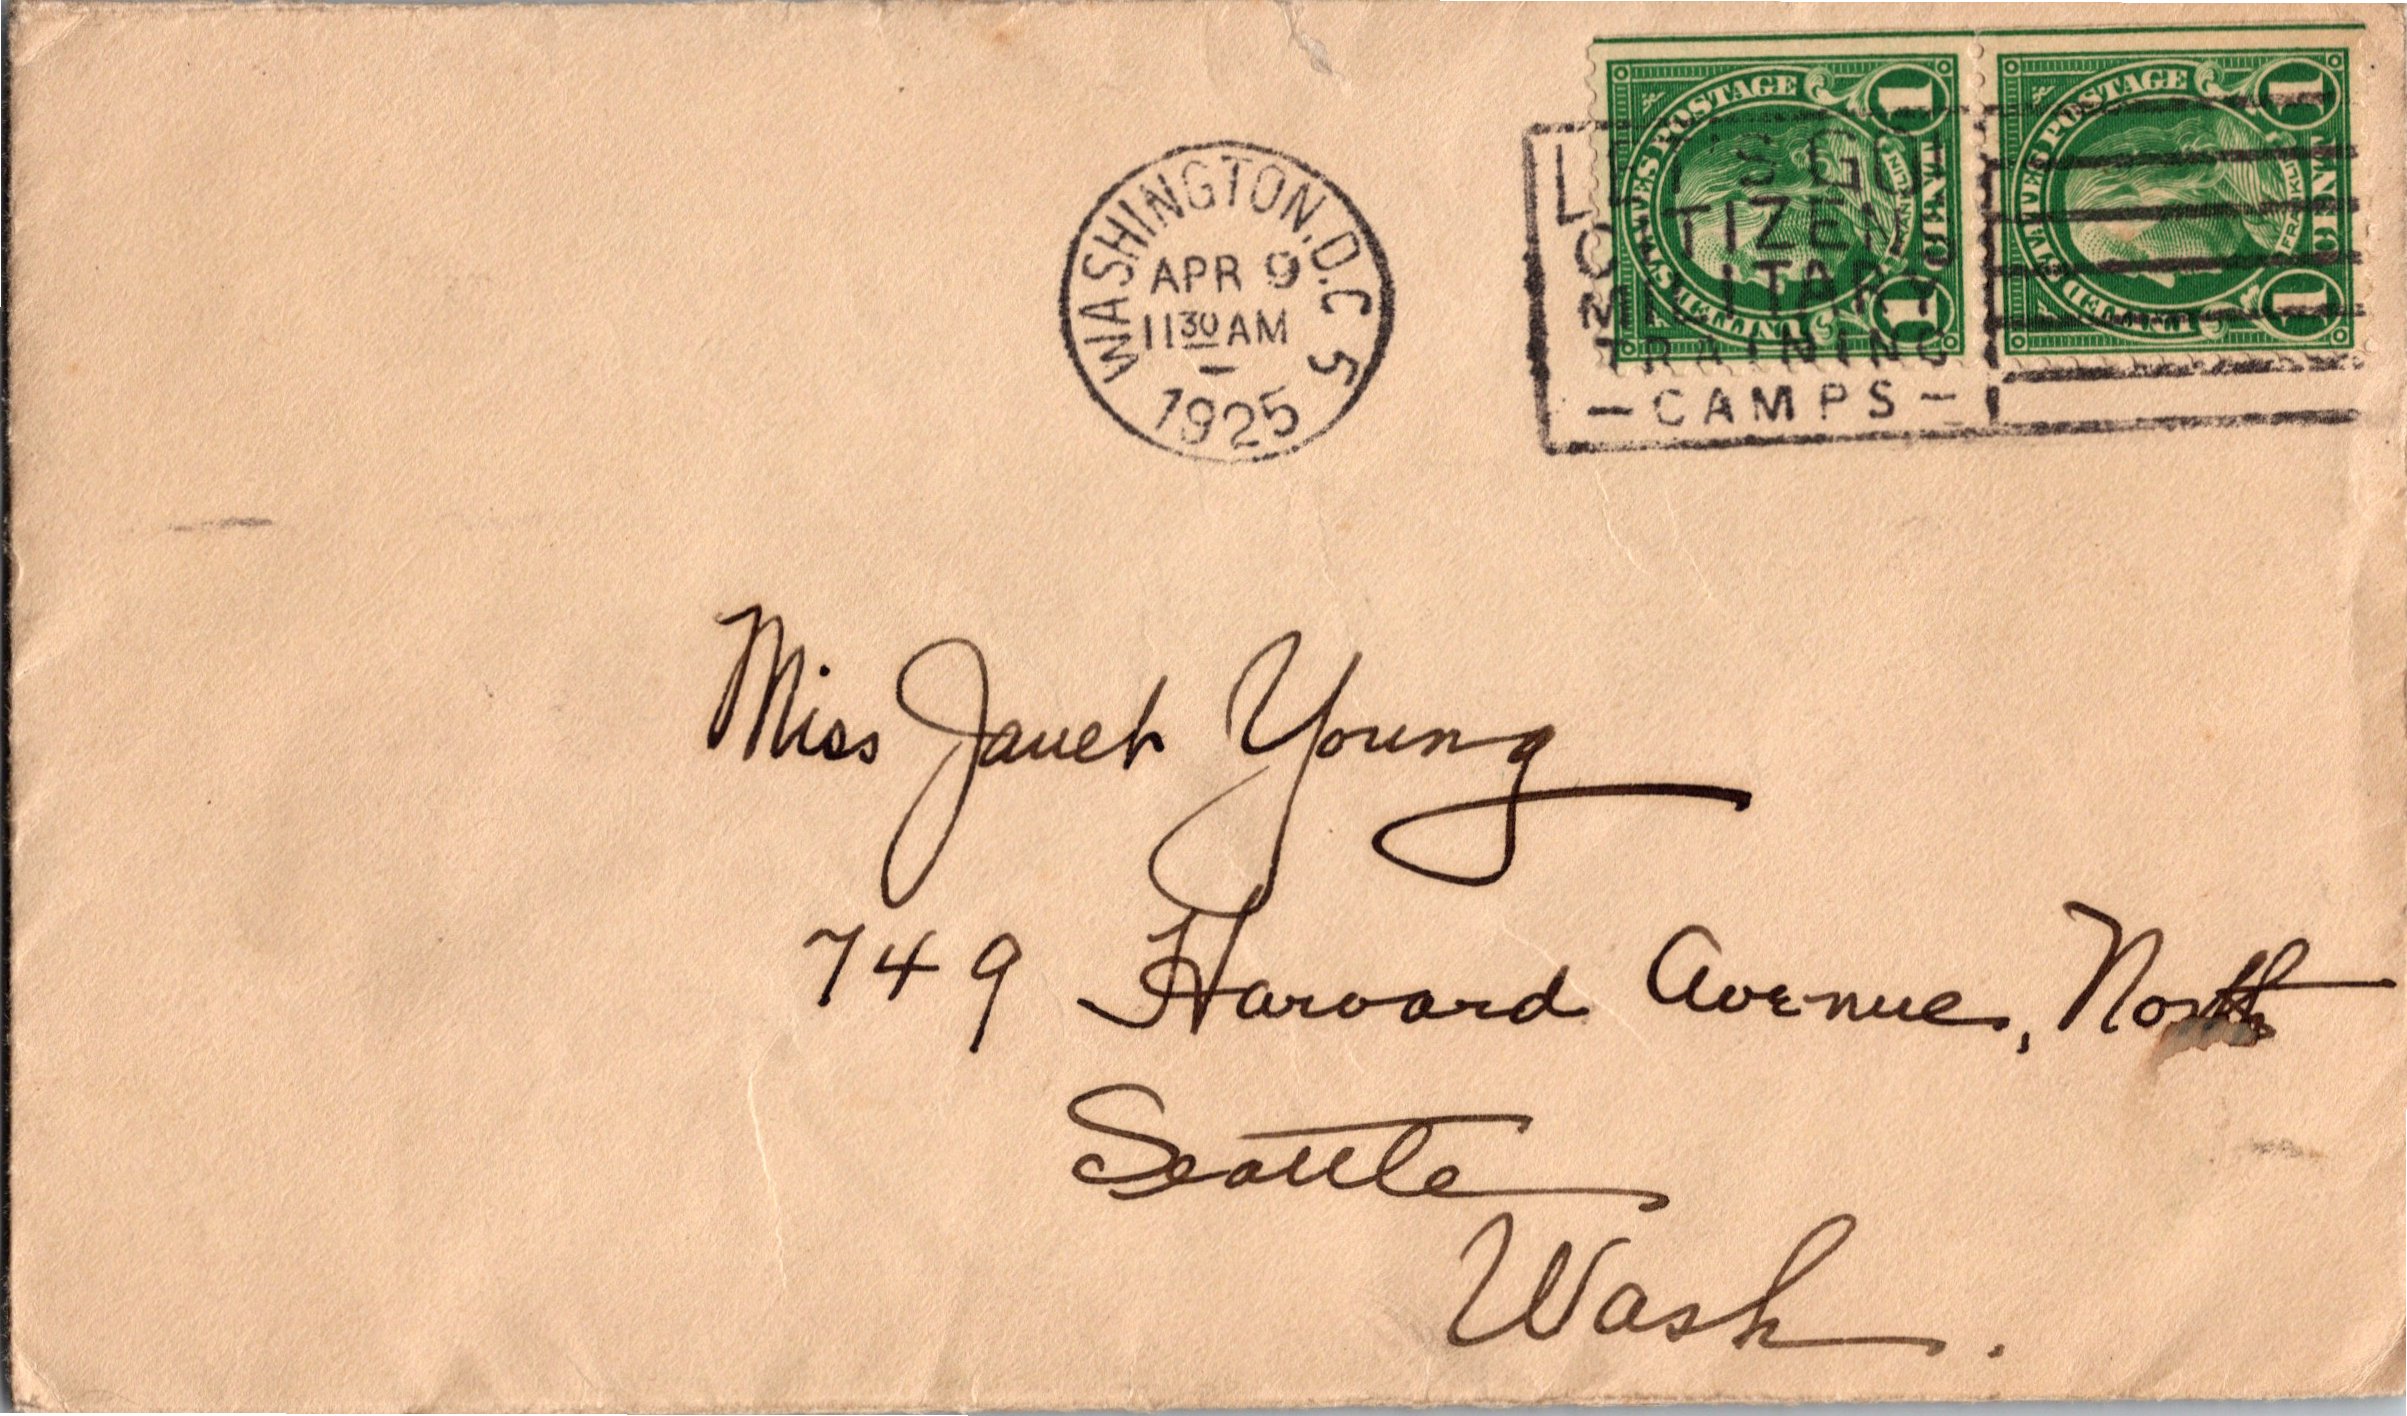 WASHINGTON, D.C. 5
APR 9
11 30 AM
1925
LET'S GO!
CITIZENS
MILITARY
TRAINING
- CAMPS -
UNITED STATES POSTAGE
FRANKLIN
1 CENT 1
UNITED STATES POSTAGE
FRANKLIN
1 CENT 1
Miss Janet Young
749 Harvard Avenue, North
Seattle
Wash.